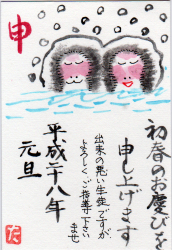 申
初春のお慶びを
申し上げます
出来の悪い生徒ですが
よろしくご指導下さいませ
平成二八年
元旦
た